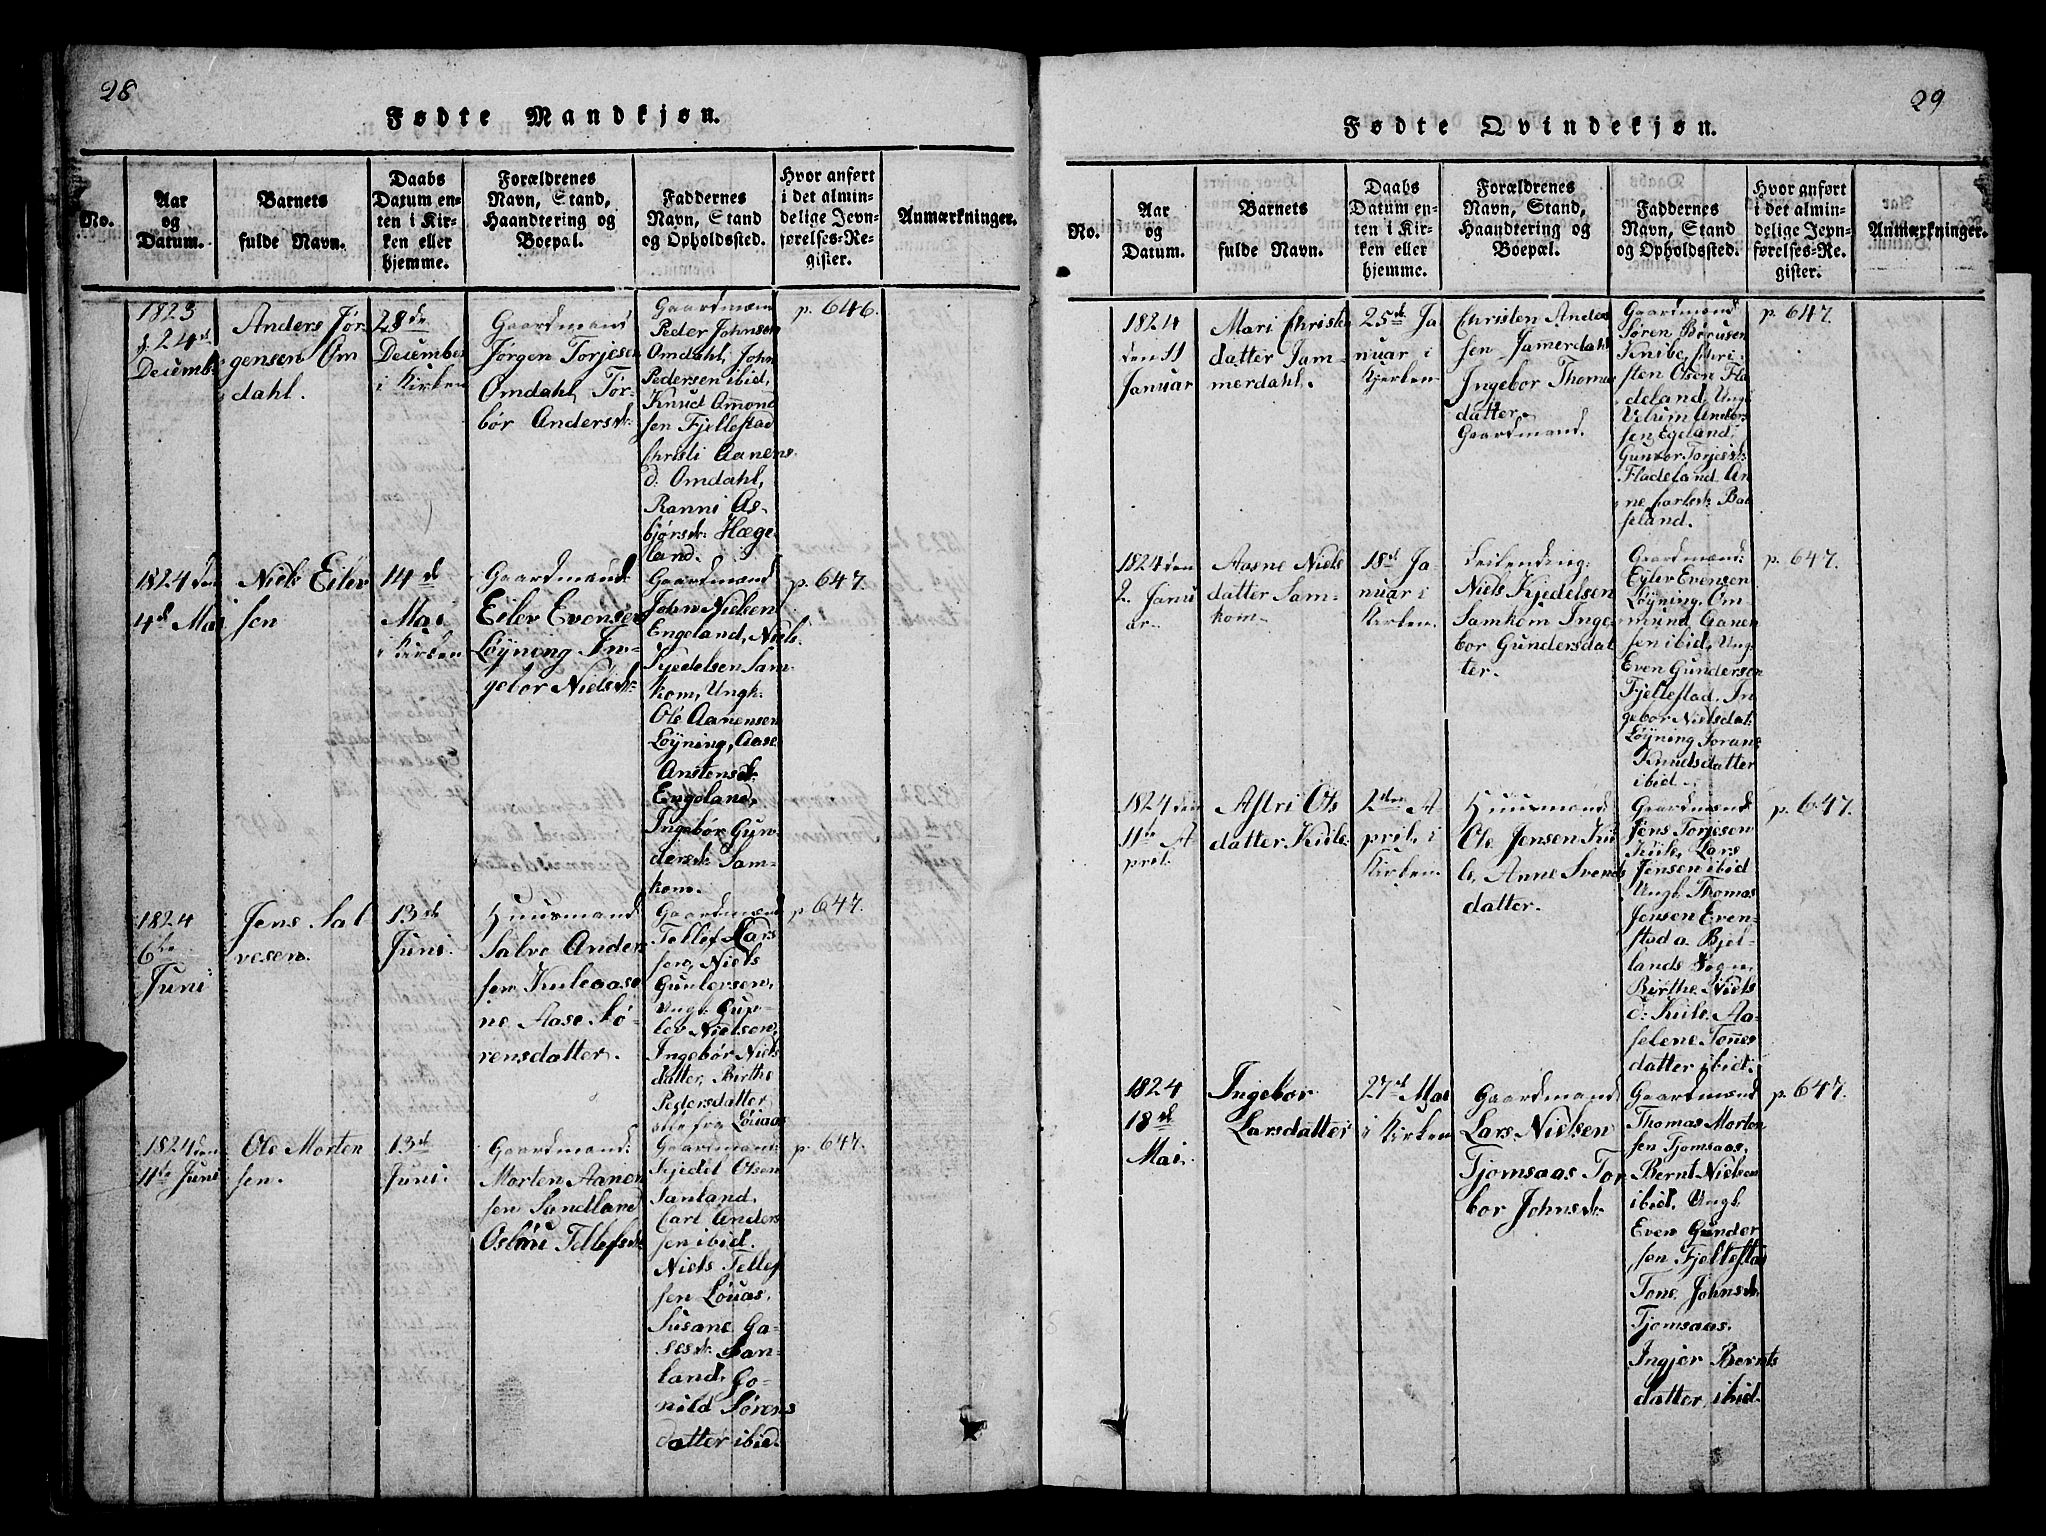 28
Fødte Mandkjøn.
No.
Aar
og
Datum.
Barnets
fulde Navn.
Daabs
Datum en-
ten i Kir-
ken eller
hjemme.
Forældrenes
Navn, Stand,
Haandtering og
Boepæl.
Faddernes
Navn, Stand
og Opholdssted.
Hvor anført
i det almin-
delige Jevn-
førelses-Re-
gister.
Anmærkninger.
1823
24de
Decemb.
Anders Jør
gensen Om
dahl.
28de
December
i Kirken
Gaardmand
Jørgen Torjesen
Omdahl, Tor-
bør Andersdr.
Gaardmænd
Peder Johnsen
Omdahl, John
Pedersen ibid,
Knud Omond
sen Fjellestad
Christi Aanens
d: Omdahl,
Ranni As-
bjørsdr. Hæge
land.
p. 646.
1824 den
4de Mai
Niels Eilev
sen
14de
Mai
i Kirken
Gaardmand
Eilev Evensen
Løyning In-
gebor Nielsdr.
Gaardmænd
John Nielsen
Engeland, Niels
Kjedelsen Sam
kom, Ungk.
Ole Aanensen
Løyning, Aase
Anstensdr.
Engeland,
Ingebør Gun
dersdr. Sam-
kom.
p. 647.
1824
6te
Juni
Jens Sal
vesen.
13de
Juni.
Huusmand
Salve Anders
sen Kuleaase
ne Aase Sø-
rensdatter.
Gaardmænd
Tellef Lars
sen, Niels
Gundersen,
Ungk. Gun-
lev Nielsen,
Ingebør Niels
datter, Birthe
Pedersdatter
alle fra Løuaas
p. 647.
1824 den
11te Juni
Ole Morten
sen.
13de
Juni.
Gaardmand:
Morten Aanen
sen Sandland
Gaardmænd:
Kjedel Olsen
Sanland,
Carl Anders
sen ibid.
Niels Tellef
sen Løuas,
Susane Ga-
sesdr. San-
land, Go-
nild Sørens
datter ibid.
p. 647.
29
Fødte Qvindekjøn.
No.
Aar
og
Datum.
Barnets
fulde Navn.
Daabs
Datum en-
ten i Kir-
ken eller
hjemme.
Forældrenes
Navn, Stand,
Haandtering og
Boepæl.
Faddernes
Navn, Stand
og Opholdssted.
Hvor anført
i det almin-
delige Jevn-
førelses-Re-
gister.
Anmærkninger.
1824
den 11
Januar
Mari Christens
datter Jam-
merdahl.
25de Ja
nuar i
Kjerken
Christen Anders
sen Jamerdahl
Ingebor Thomas
datter.
Gaardmand.
Gaardmænd
Søren Børusen
Knibe, Chri-
sten Olsen Fla
deland, Ungk.
Vilum Anders
sen Egeland,
Gunvor Torjesdr.
Fladeland An
ne Carlsdr. Baa
seland.
p. 647.
1824 den
2. Janu
ar.
Aasne Niels
datter Sam-
kom.
18de Ja-
nuar i
Kirken.
Leilending:
Niels Kjedelsen
Samkom Inge
bor Gundersdat
ter.
Gaardmænd:
Eilev Evensen
Løyning, Om
mund Aanen
sen ibid, Ungk.
Even Gundersen
Fjellestad. In
gebor Nielsdat.
Løyning Joran
Knudsdatter
ibid.
p. 647.
1824 den
11te A
pril.
Astri Ols
datter Kuile.
A-
pril i
Kirken.
Huusmand
Ole Jensen Kui
le, Anne Svends
datter.
Gaardmænd
Jens Torjesen
Kuile, Lars
Jensen ibid
Ungk. Thomas
Jensen Even-
stad a. Bjel-
lands Sogn,
Birthe Niels
d: Kuile. Aa-
selene Tønes
datter ibid.
p. 647.
1824
18de
Mai.
Ingebor
Larsdatter
27de Mai
i Kirken
Gaardmand
Lars Nielsen
Tjomsaas Tor
bor Johnsdr.
Gaardmænd
Thomas Morten
sen Tjomsaas,
Bernt Nielsen
ibid. Ungk.
Even Gunder
sen Fjellestad
Tone Johnsdr.
Tjomsaas.
Ingjer Bernts
datter, ibid.
p. 647.